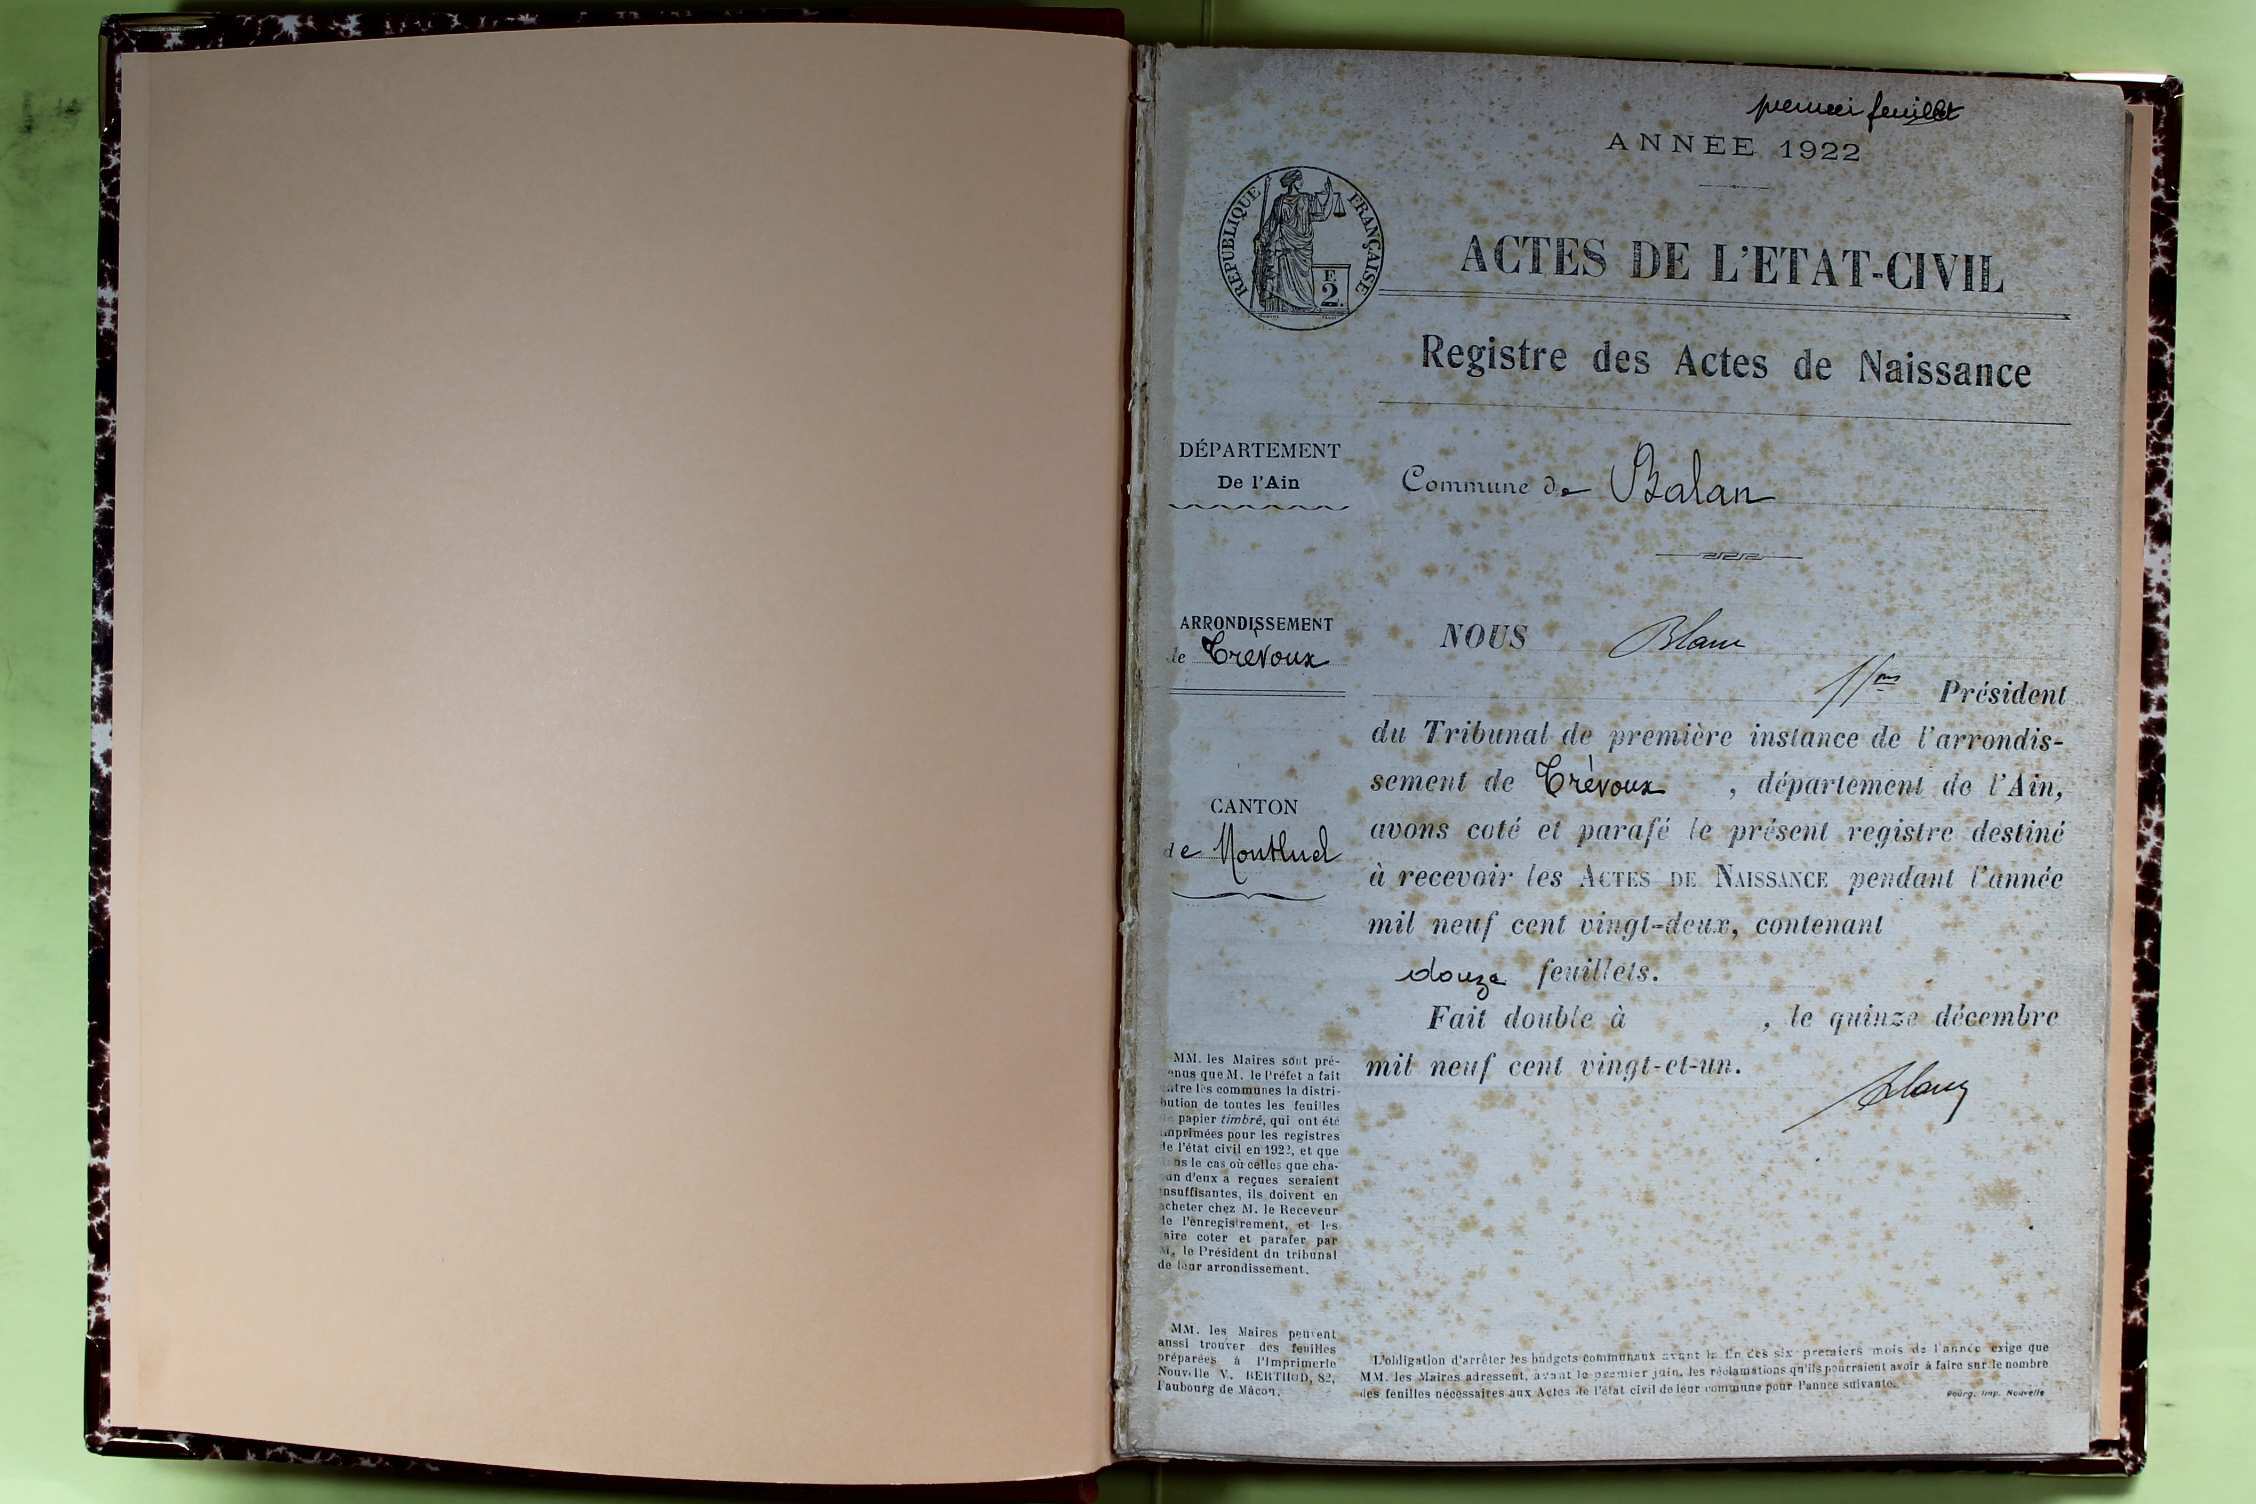 premier feuillet
ANNÉE 1922
RÉPUBLIQUE FRANÇAISE
E
2.
ACTES DE L'ETAT-CIVIL
Registre des Actes de Naissance
DÉPARTEMENT
De l'Ain
Commune de Balan
ARRONDISSEMENT
de Trévoux
CANTON
de Montluel
NOUS Blanc
Président
du Tribunal de première instance de l'arrondis-
sement de Trévoux, département de l'Ain,
avons coté et parafé le présent registre destiné
à recevoir les ACTES DE NAISSANCE pendant l'année
mil neuf cent vingt-deux, contenant
douze feuillets.
Fait double à , le quinze décembre
mil neuf cent vingt-et-un.
Blanc
MM. les Maires sont pré-
venus que M. le Préfet a fait
entre les communes la distri-
bution de toutes les feuilles
de papier timbré, qui ont été
imprimées pour les registres
de l'état civil en 1922, et que
dans le cas où celles que cha-
cun d'eux a reçues seraient
insuffisantes, ils doivent en
acheter chez M. le Receveur
de l'enregistrement, et les
faire coter et parafer par
M. le Président du tribunal
de leur arrondissement.
MM. les Maires peuvent
aussi trouver des feuilles
préparées à l'Imprimerie
Nouvelle V. BERTHOD, 82,
faubourg de Mâcon.
L'obligation d'arrêter les budgets communaux avant la fin des six premiers mois de l'année exige que
MM. les Maires adressent, avant le premier juin, les réclamations qu'ils pourraient avoir à faire sur le nombre
des feuilles nécessaires aux Actes de l'état civil de leur commune pour l'année suivante.
Bourg. Imp. Nouvelle